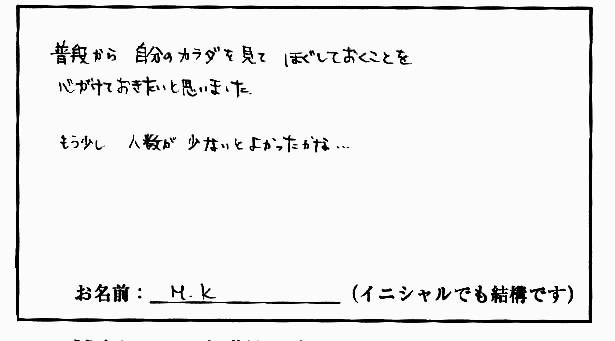 普段から 自分のカラダを見て ほぐしておくことを
心がけておきたいと思いました
もう少し 人数が 少ないとよかったかな…
お名前： M.K （イニシャルでも結構です）